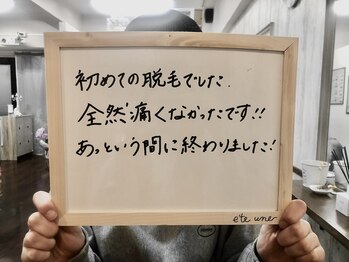 初めての脱毛でした.
全然痛くなかったです!!
あっという間に終わりました!
ete une